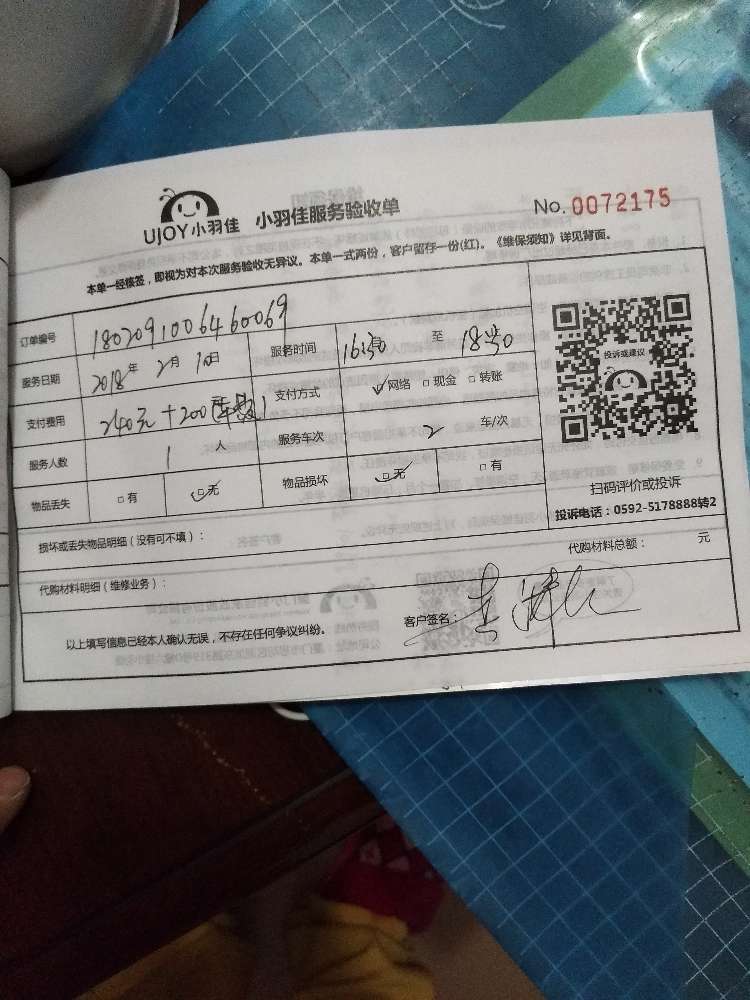 UJOY小羽佳 小羽佳服务验收单 No. 0072175
本单一经核签，即视为对本次服务验收无异议。本单一式两份，客户留存一份(红)。《维保须知》详见背面。
订单编号 1802091006460069
服务日期 2018年 2月 10日 服务时间 16:30 至 18:30
支付费用 240元+200 支付方式 ☑网络 □现金 □转账
服务人数 1 人 服务车次 2 车/次
物品丢失 □有 ☑无 物品损坏 ☑无 □有
投诉或建议
扫码评价或投诉
投诉电话：0592-5178888转2
损坏或丢失物品明细（没有可不填）：
代购材料总额： 元
代购材料明细（维修业务）：
以上填写信息已经本人确认无误，不存在任何争议纠纷。 客户签名：